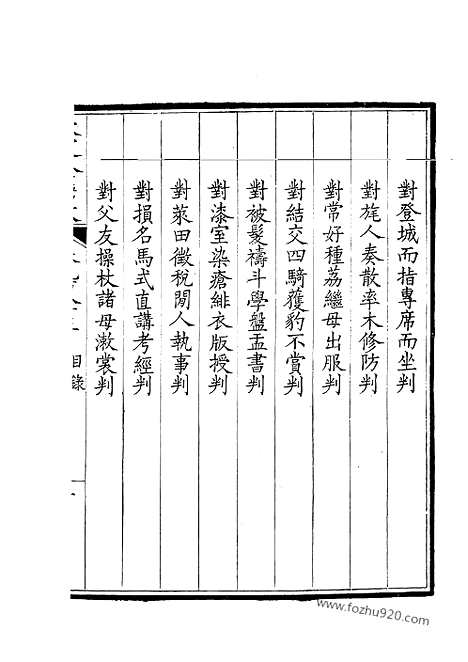 對登城而指專席而坐判
對旄人奏散率木修防判
對常好種荔繼母出服判
對結交四騎獲豹不賞判
對被髮禱斗學盤盂書判
對漆室染瘡緋衣版授判
對萊田徵稅閒人執事判
對損名馬式直講考經判
對父友操杖諸母漱裳判
目錄
www.fozhu920.com